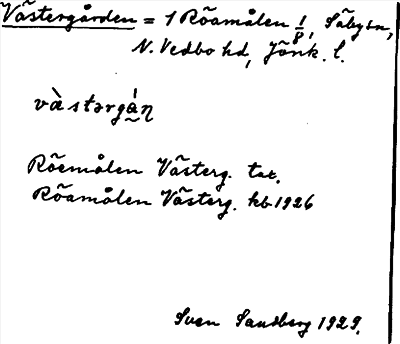 Västergården = 1 Röamålen 1/8, Säbysn,
N. Vedbo hd, Jönk. l.
västərgån
Röemålen Västerg. tax.
Röamålen Västerg. kb 1926
Sven Sandberg 1929.